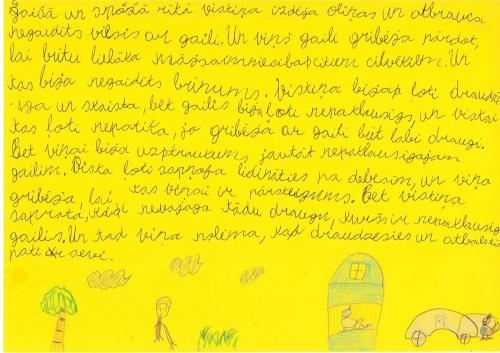 gaišā un spožā rītā vistiņa izdēja oliņas un atbrauca
negaidīts viesis ar gaili. Un viņš gaili gribēja pārdot,
lai būtu lielāka māj saimniecība citiem cilvēkiem. Un
tas bija negaidīts brīnums. Vistiņa bija ļoti draudzī-
-ga un skaista, bet gailis bija ļoti nepaklausīgs, un vistai
tas ļoti nepatika, jo gribēja ar gaili būt labi draugi.
Bet viņai bija uztraukums, jautāt nepaklausīgajam
gailim. Vista ļoti sapņoja lidināties pa debesīm, un viņa
gribēja, lai tas viņai ir pārsteigums. Bet vistiņa
saprata, ka nevajaga tādu draugu, kurš ir nepaklausīgs
gailis. Un tad viņa nolēma, kad draudzēsies un atbalstīs
pati sevi.